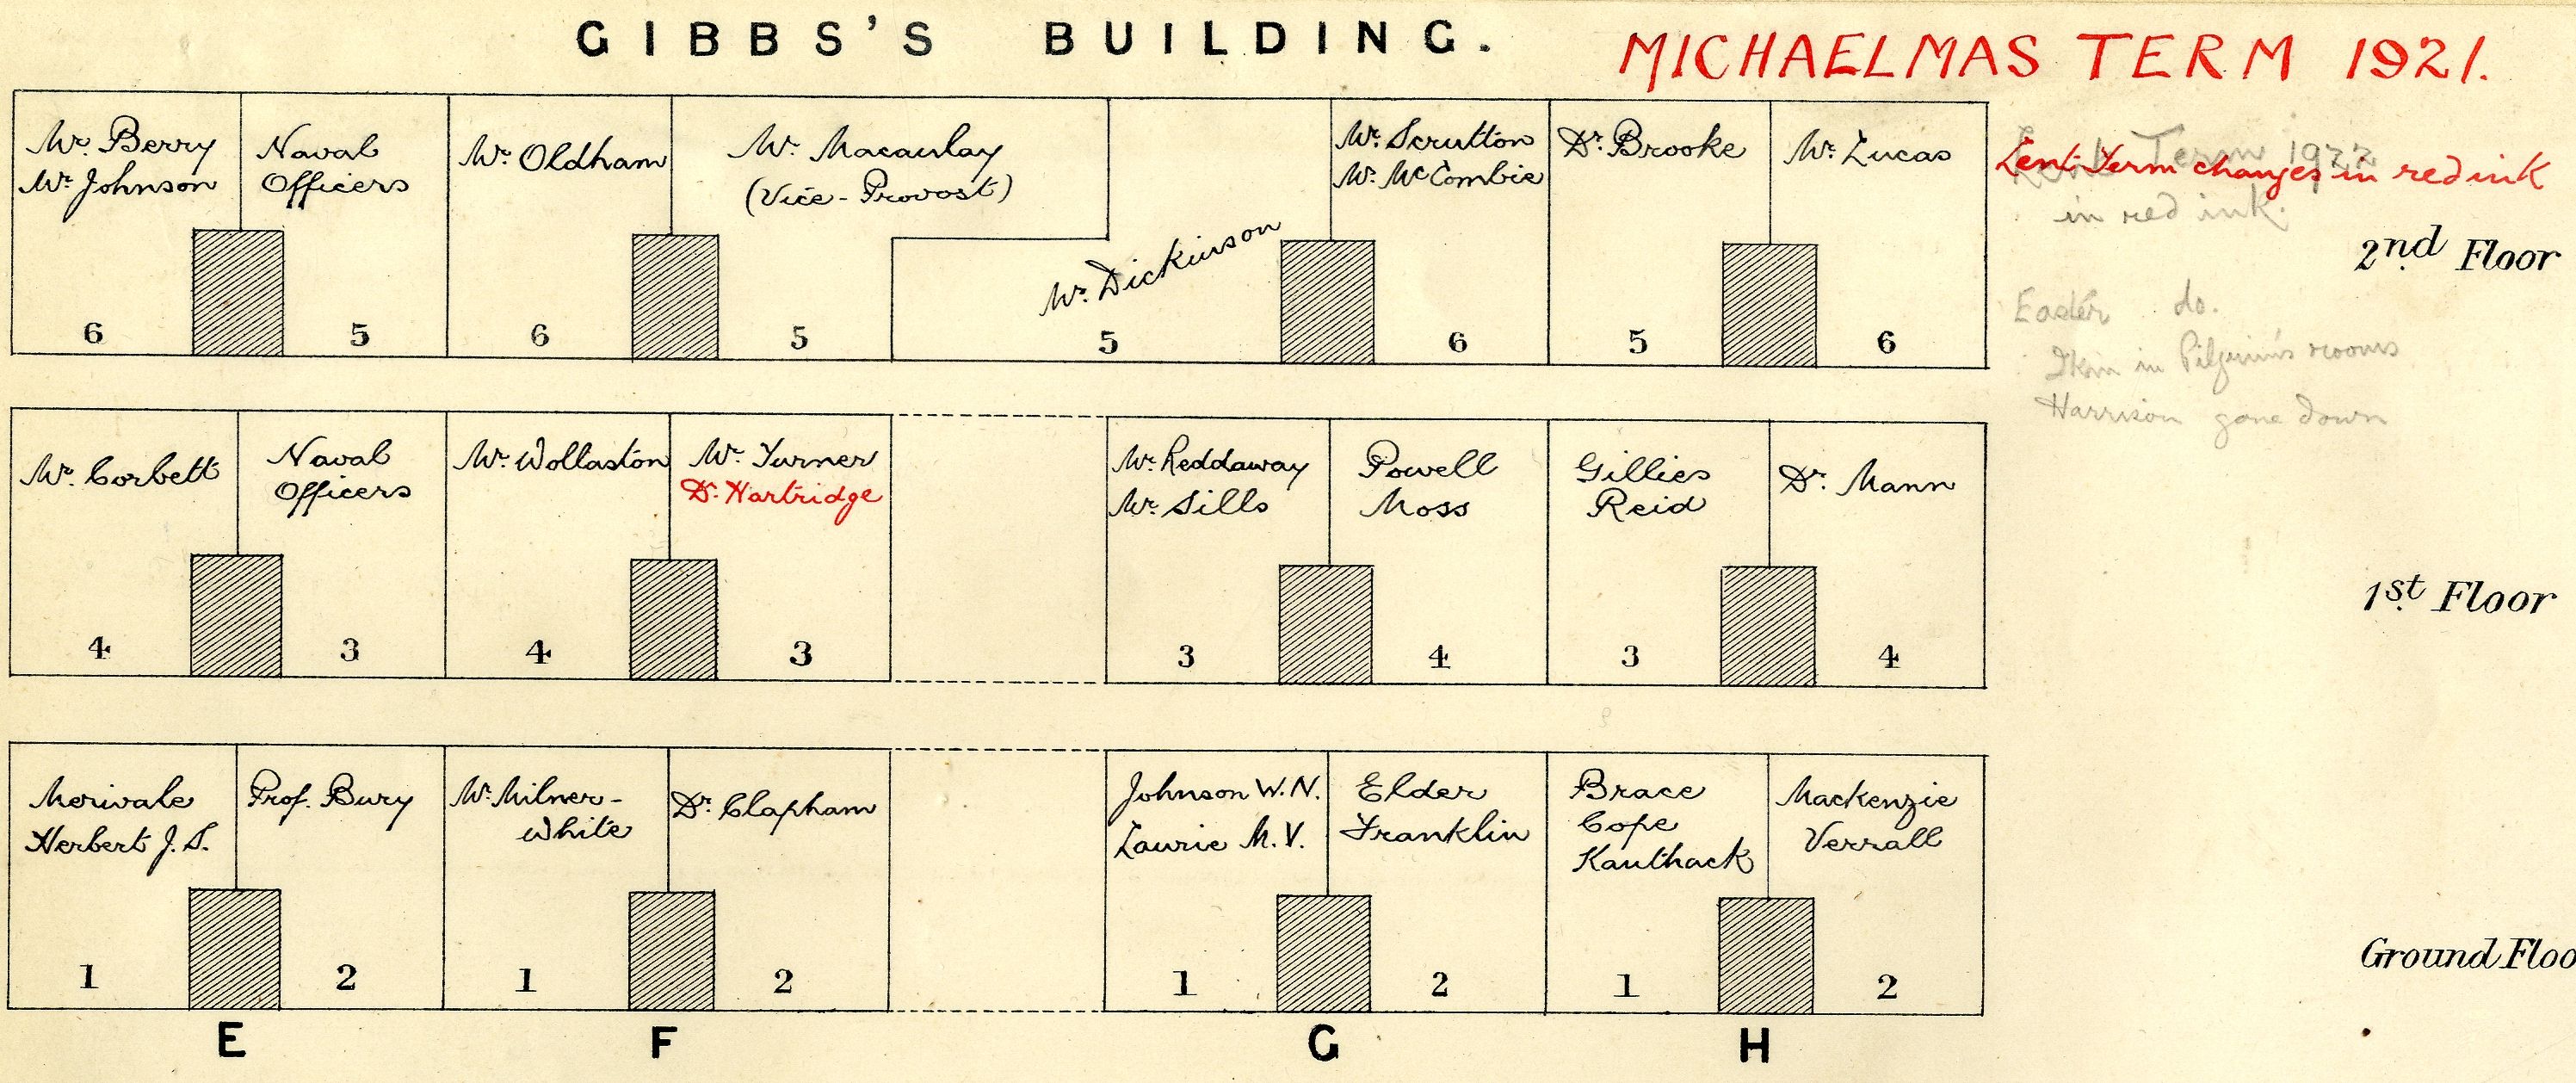 GIBBS'S BUILDING.
MICHAELMAS TERM 1921.
Mr. Berry
Mr. Johnson
6
Naval
Officers
5
Mr. Oldham
6
Mr. Macaulay
(Vice-Provost)
5
Mr. Dickinson
5
Mr. Scrutton
Mr. McCombie
6
Dr. Brooke
5
Mr. Lucas
6
Lent Term 1922
in red ink.
Lent Term changes in red ink
2nd Floor
Easter do.
in Pilgrim's rooms
Harrison gone down
Mr. Corbett
4
Naval
Officers
3
Mr. Wollaston
4
Mr. Turner
Dr. Hartridge
3
Mr. Reddaway
Mr. Sills
3
Powell
Moss
4
Gillies
Reid
3
Dr. Mann
4
1st Floor
Merivale
Herbert J.S.
1
Prof. Bury
2
Mr. Milner-
White
1
Dr. Clapham
2
Johnson W.N.
Laurie M.V.
1
Elder
Franklin
2
Brace
Cope
Kanthack
1
Mackenzie
Verrall
2
Ground Floo
E
F
G
H